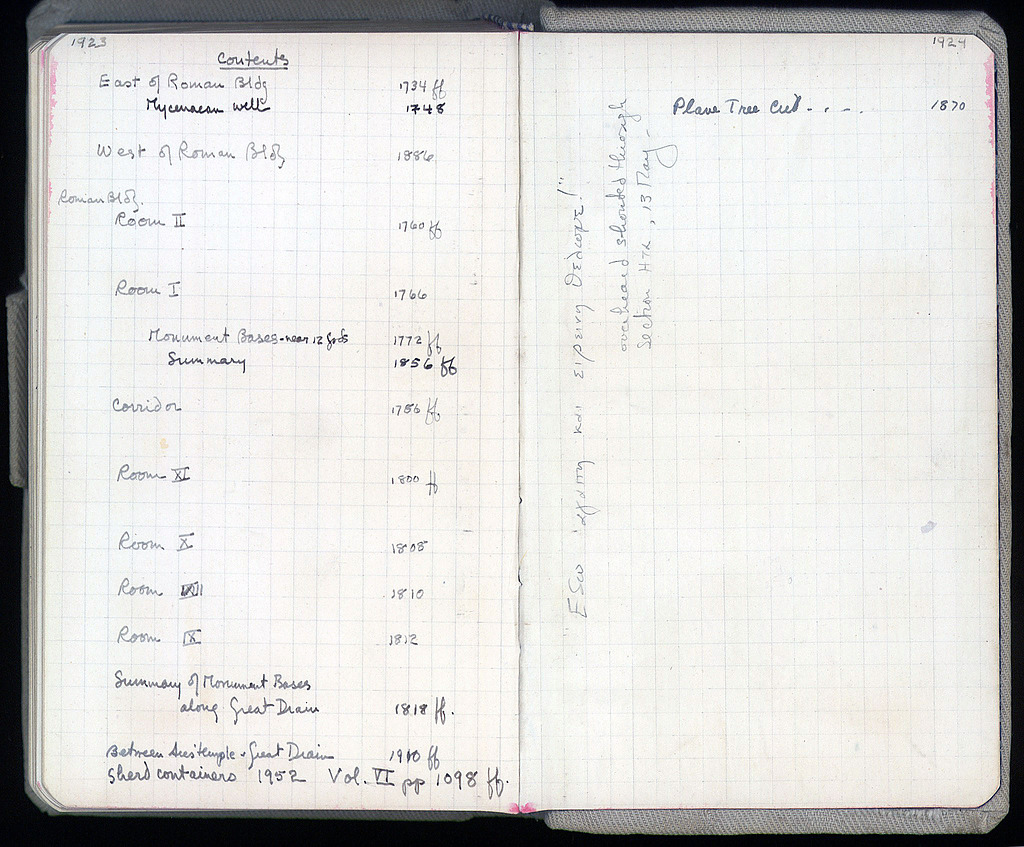 1923
Contents
East of Roman Bldg 1734 ff
Mycenaean well 1748
West of Roman Bldg 1886
Roman Bldg.
Room II 1760 ff
Room I 1766
Monument Bases - near 12 Gods 1772 ff
Summary 1856 ff
Corridor 1786 ff
Room XI 1800 ff
Room X 1808
Room 1810
Room IX 1812
Summary of Monument Bases
along Great Drain 1818 ff.
Between Ares temple & Great Drain 1910 ff
Sherd containers 1952 Vol. VI pp 1098 ff.
1924
Plane Tree Cut - . - . 1870
"Εδω ἀγαπη και ειρεινη θελωμε!"
overheard shouted through
Section HTR, 13 May -